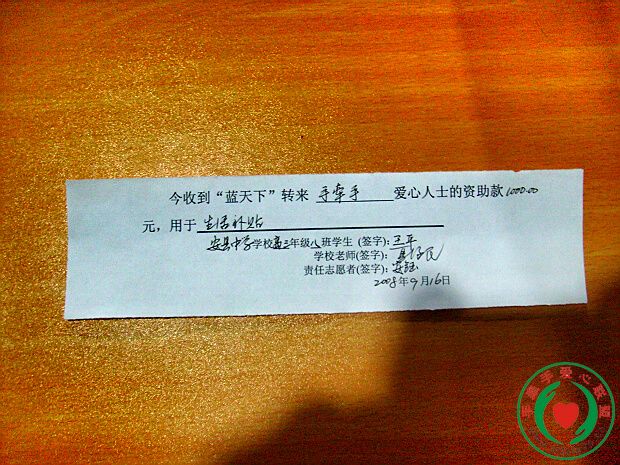 今收到“蓝天下”转来 手牵手 爱心人士的资助款1000.00
元，用于 生活补贴
安县中学学校高三年级八班学生 (签字): 王平
学校老师(签字):
责任志愿者(签字):
2008年9月16日
手牵手爱心联盟